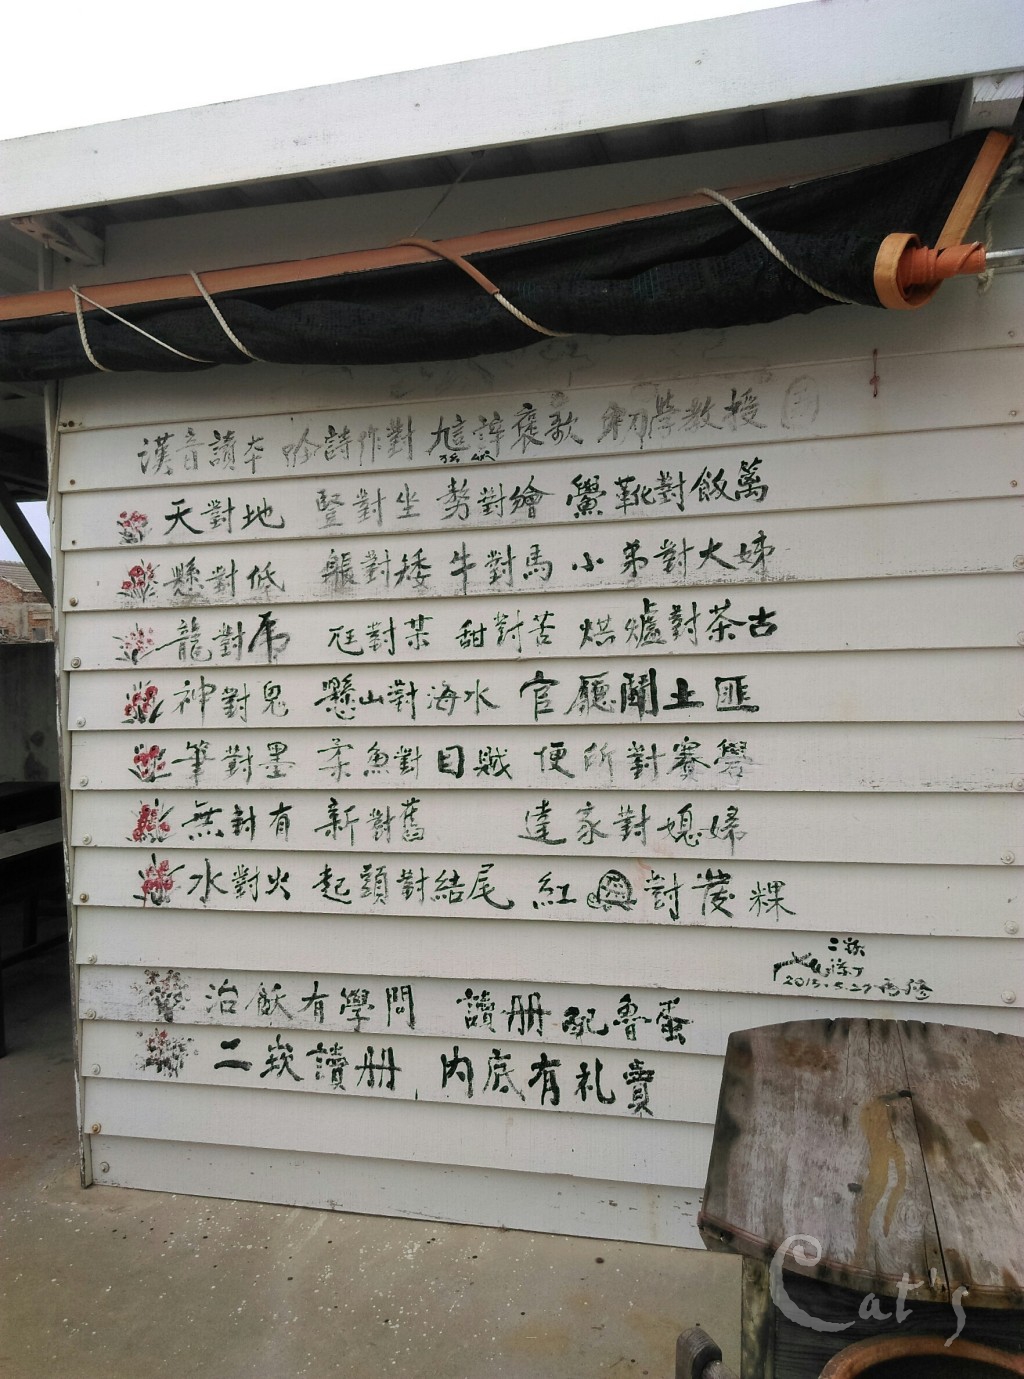 漢音讀本 吟詩作對 褒歌 初學教授
天對地 豎對坐 對繪 鱟靴對飯篱
懸對低 躼對矮 牛對馬 小弟對大姊
龍對虎 尫對某 甜對苦 烘爐對茶古
神對鬼 懸山對海水 官廳鬪土匪
筆對墨 柔魚對目賊 便所對賽礐
無對有 新對舊 達家對媳婦
水對火 起頭對結尾 紅對發粿
二崁
2015.5.27
治飫有學問 讀册配魯蛋
二崁讀册 內底有礼賣
Cat's